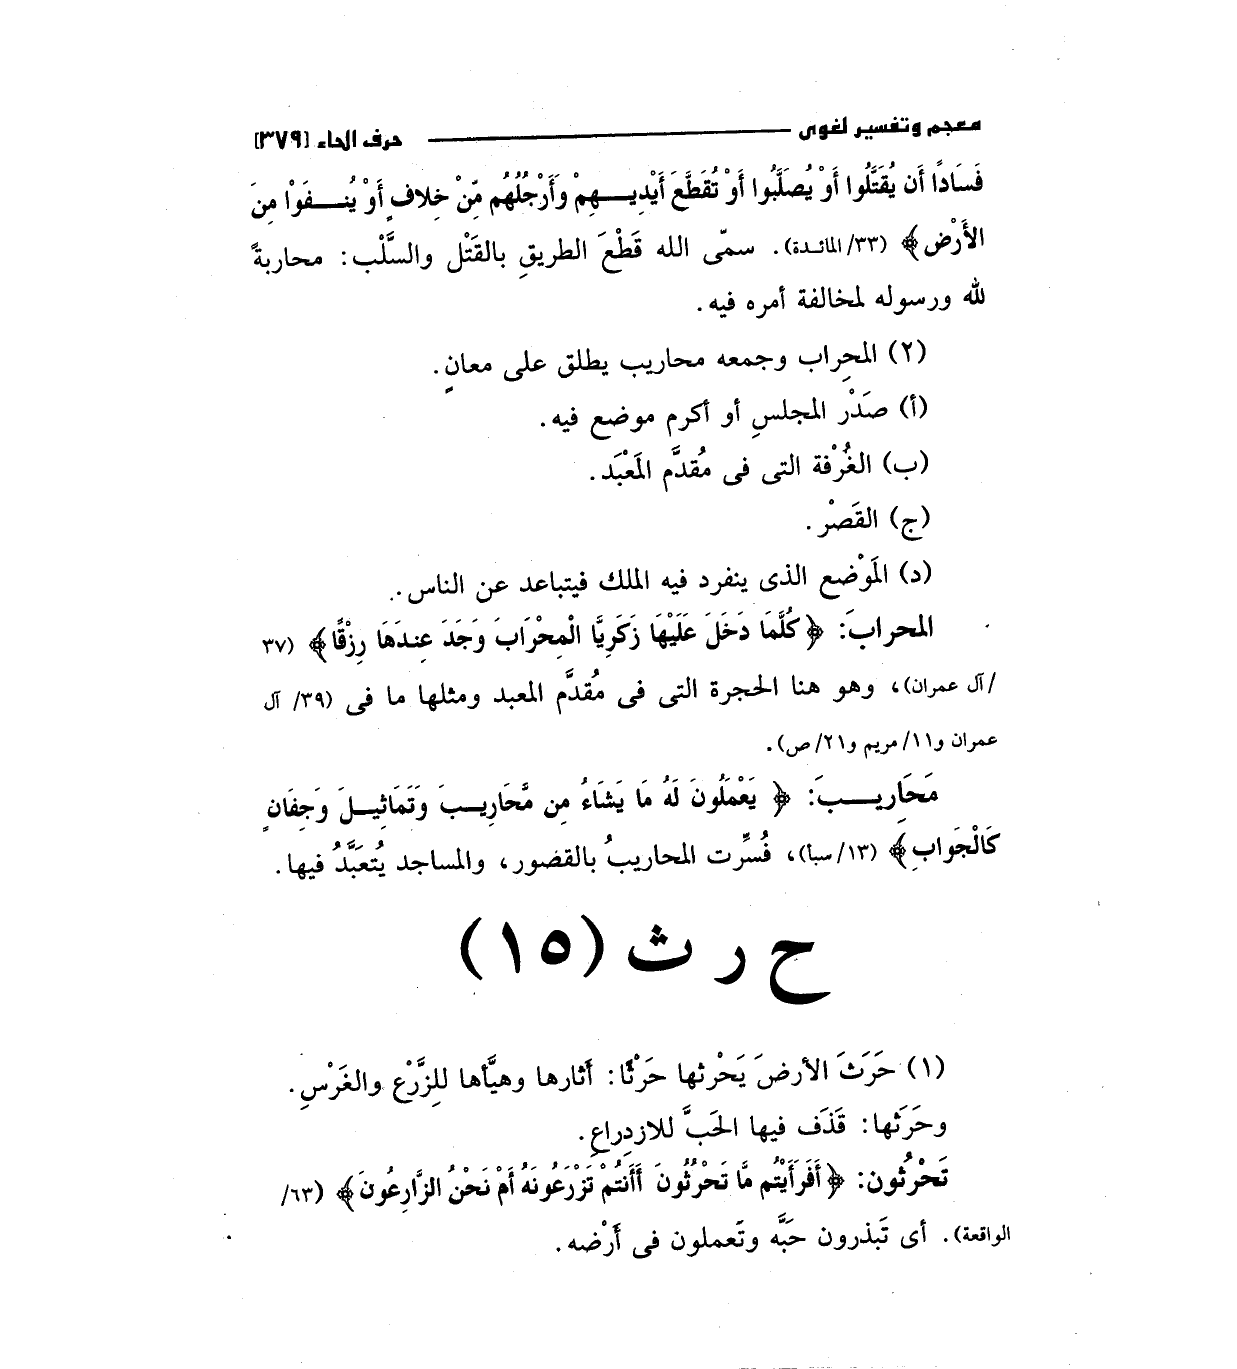 معجم وتفسير لغوى ــــــــ حرف الحاء [٣٧٩]
فَسَادًا أَن يُقَتَّلُوا أَوْ يُصَلَّبُوا أَوْ تُقَطَّعَ أَيْدِيـــهِمْ وَأَرْجُلُهُم مِّنْ خِلافٍ أَوْ يُنـــفَوْا مِنَ
الأَرْضِ﴾ (٣٣/ المائدة). سمّى الله قَطْعَ الطريقِ بالقَتْل والسَّلْب: محاربةً
لله ورسوله لمخالفة أمره فيه.
(٢) المحِراب وجمعه محاريب يطلق على معانٍ.
(أ) صَدْر المجلسِ أو أكرم موضع فيه.
(ب) الغُرْفة التى فى مُقدَّم المَعْبَد.
(ج) القَصْر.
(د) المَوْضع الذى ينفرد فيه الملك فيتباعد عن الناس.
المحرابَ: ﴿كُلَّمَا دَخَلَ عَلَيْهَا زَكَرِيَّا الْمِحْرَابَ وَجَدَ عِندَهَا رِزْقًا﴾ (٣٧
/آل عمران)، وهو هنا الحجرة التى فى مُقدَّم المعبد ومثلها ما فى (٣٩/ آل
عمران و١١/ مريم و٢١/ ص).
مَحَارِيـــبَ: ﴿ يَعْمَلُونَ لَهُ مَا يَشَاءُ مِن مَّحَارِيبَ وَتَمَاثِيلَ وَجِفَانٍ
كَالْجَوَابِ﴾ (١٣/ سبأ)، فُسِّرت المحاريبُ بالقصور، والمساجد يُتعَبَّدُ فيها.
ح ر ث (١٥)
(١) حَرَثَ الأرضَ يَحْرثها حَرْثًا: أَثارها وهيَّأها للِزَّرْع والغَرْسِ.
وحَرَثها: قَذَف فيها الحَبَّ للازدِراعِ.
تَحْرُثون: ﴿أَفَرَأَيْتُم مَّا تَحْرُثُونَ أَأَنتُمْ تَزْرَعُونَهُ أَمْ نَحْنُ الزَّارِعُونَ﴾ (٦٣/
الواقعة). أى تَبذرون حَبَّه وتَعملون فى أَرْضه.